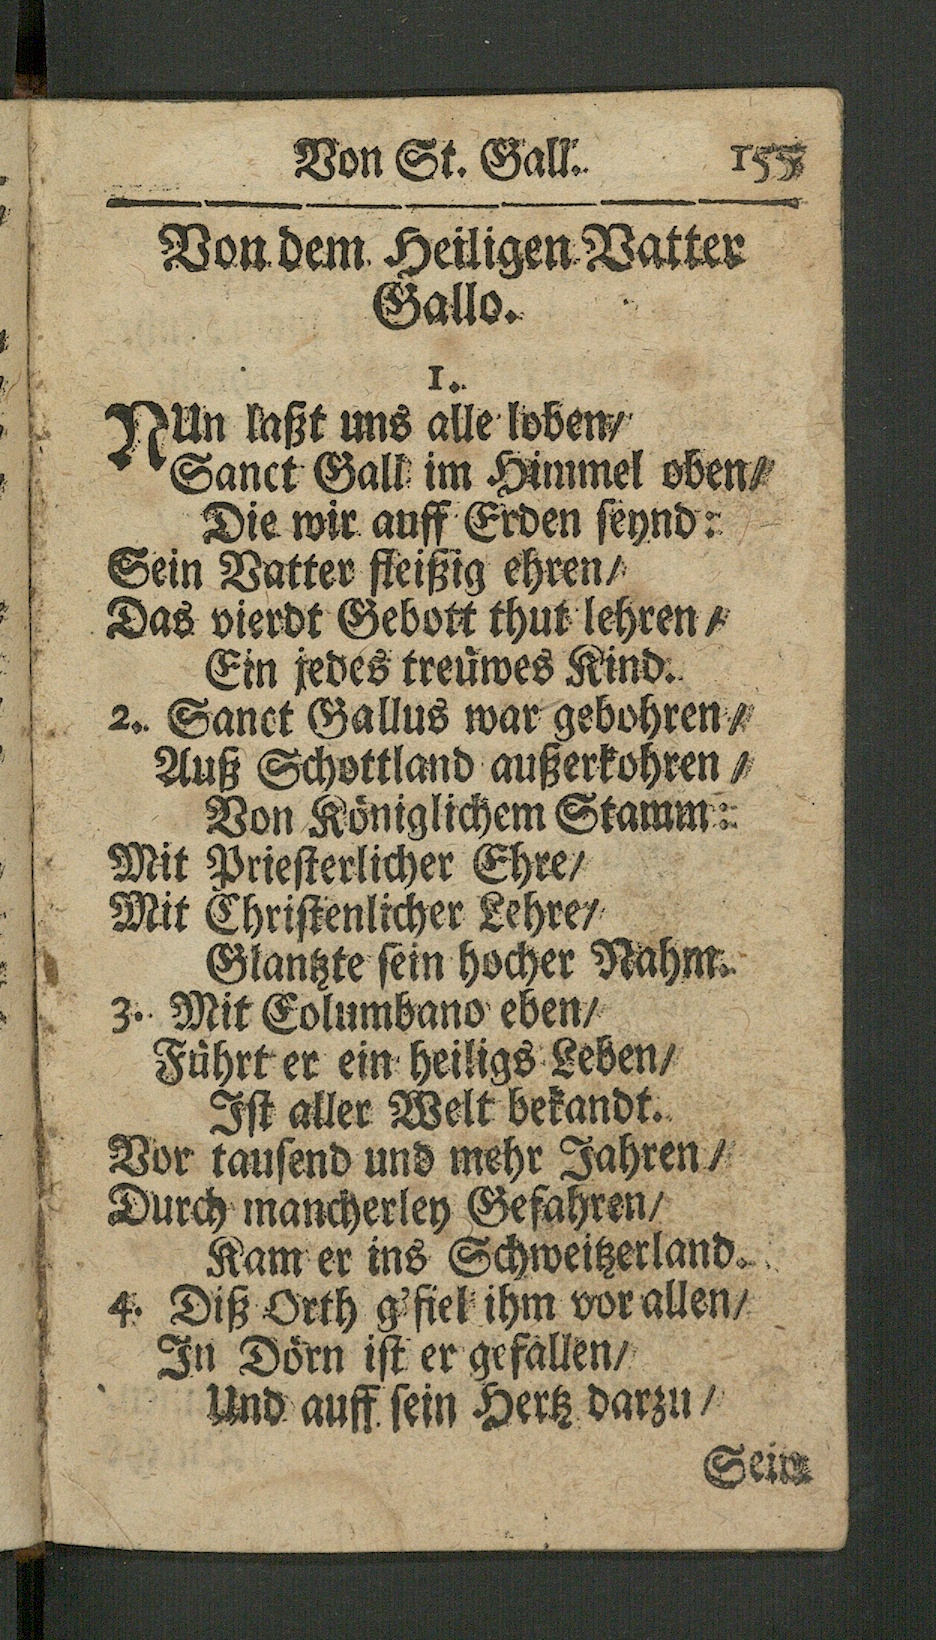 Von St. Gall. 155
Von dem Heiligen Vatter
Gallo.
1.
NUn laßt uns alle loben/
Sanct Gall im Himmel oben/
Die wir auff Erden seynd:
Sein Vatter fleißig ehren/
Das vierdt Gebott thut lehren/
Ein jedes treüwes Kind.
2. Sanct Gallus war gebohren/
Auß Schottland außerkohren/
Von Königlichem Stamm:
Mit Priesterlicher Ehre/
Mit Christenlicher Lehre/
Glantzte sein hocher Nahm.
3. Mit Columbano eben/
Führt er ein heiligs Leben/
Ist aller Welt bekandt.
Vor tausend und mehr Jahren/
Durch mancherley Gefahren/
Kam er ins Schweitzerland.
4. Diß Orth g'fiel ihm vor allen/
In Dörn ist er gefallen/
Und auff sein Hertz darzu/
Sein